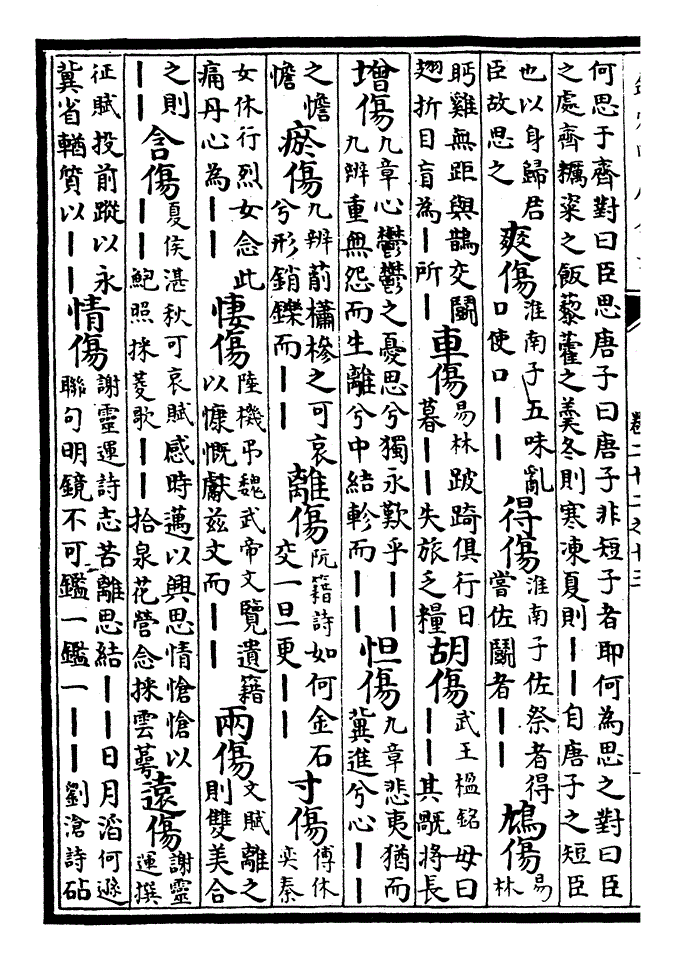 何思于齊對曰臣思唐子曰唐子非短子者耶何為思之對曰臣
之處齊糲粢之飯藜藿之羹冬則寒凍夏則｜｜自唐子之短臣
也以身歸君
臣故思之
爽傷
淮南子五味亂
口使口｜｜
得傷
淮南子佐祭者得
嘗佐鬭者｜｜
鳩傷
易
林
眄雞無距與鵲交鬭
翅折目盲為｜所｜
車傷
易林跛踦俱行日
暮｜｜失旅乏糧
胡傷
武王楹銘毋曰
｜｜其旤將長
增傷
九章心鬱鬱之憂思兮獨永歎乎｜｜
九辨重無怨而生離兮中結軫而｜｜
怛傷
九章悲夷猶而
冀進兮心｜｜
之憺
憺
瘀傷
九辨萷櫹槮之可哀
兮形銷鑠而｜｜
離傷
阮籍詩如何金石
交一旦更｜｜
寸傷
傅休
奕秦
女休行烈女念此
痛丹心為｜｜
悽傷
陸機弔魏武帝文覽遺籍
以慷慨獻茲文而｜｜
兩傷
文賦離之
則雙美合
之則
｜｜
含傷
夏侯湛秋可哀賦感時邁以興思情愴愴以
｜｜鮑照採菱歌｜｜拾泉花營念採雲蕚
遠傷
謝靈
運撰
征賦投前蹤以永
冀省輶質以｜｜
情傷
謝靈運詩志苦離思結｜｜日月滔何遜
聯句明鏡不可鑑一鑑一｜｜劉滄詩砧
卷二十二之十三